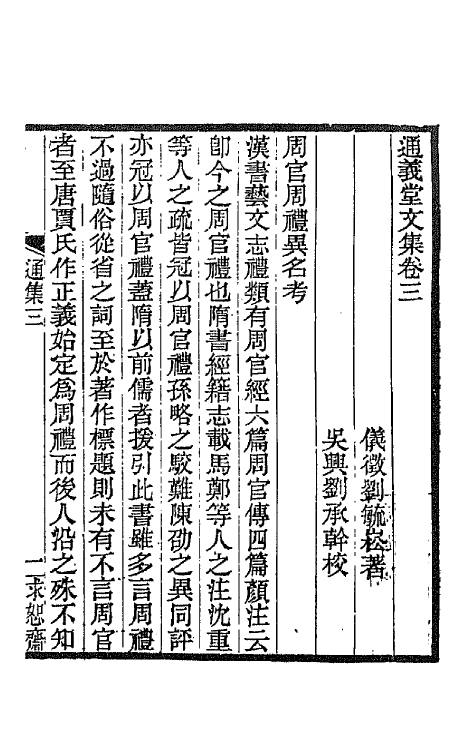 通義堂文集卷三
儀徵劉毓崧著
吳興劉承幹校
周官周禮異名考
漢書藝文志禮類有周官經六篇周官傳四篇顏注云
卽今之周官禮也隋書經籍志載馬鄭等人之注沈重
等人之疏皆冠以周官禮孫略之駮難陳劭之異同評
亦冠以周官禮蓋隋以前儒者援引此書雖多言周禮
不過隨俗從省之詞至於著作標題則未有不言周官
者至唐賈氏作正義始定爲周禮而後人沿之殊不知
通集三
一求恕齋